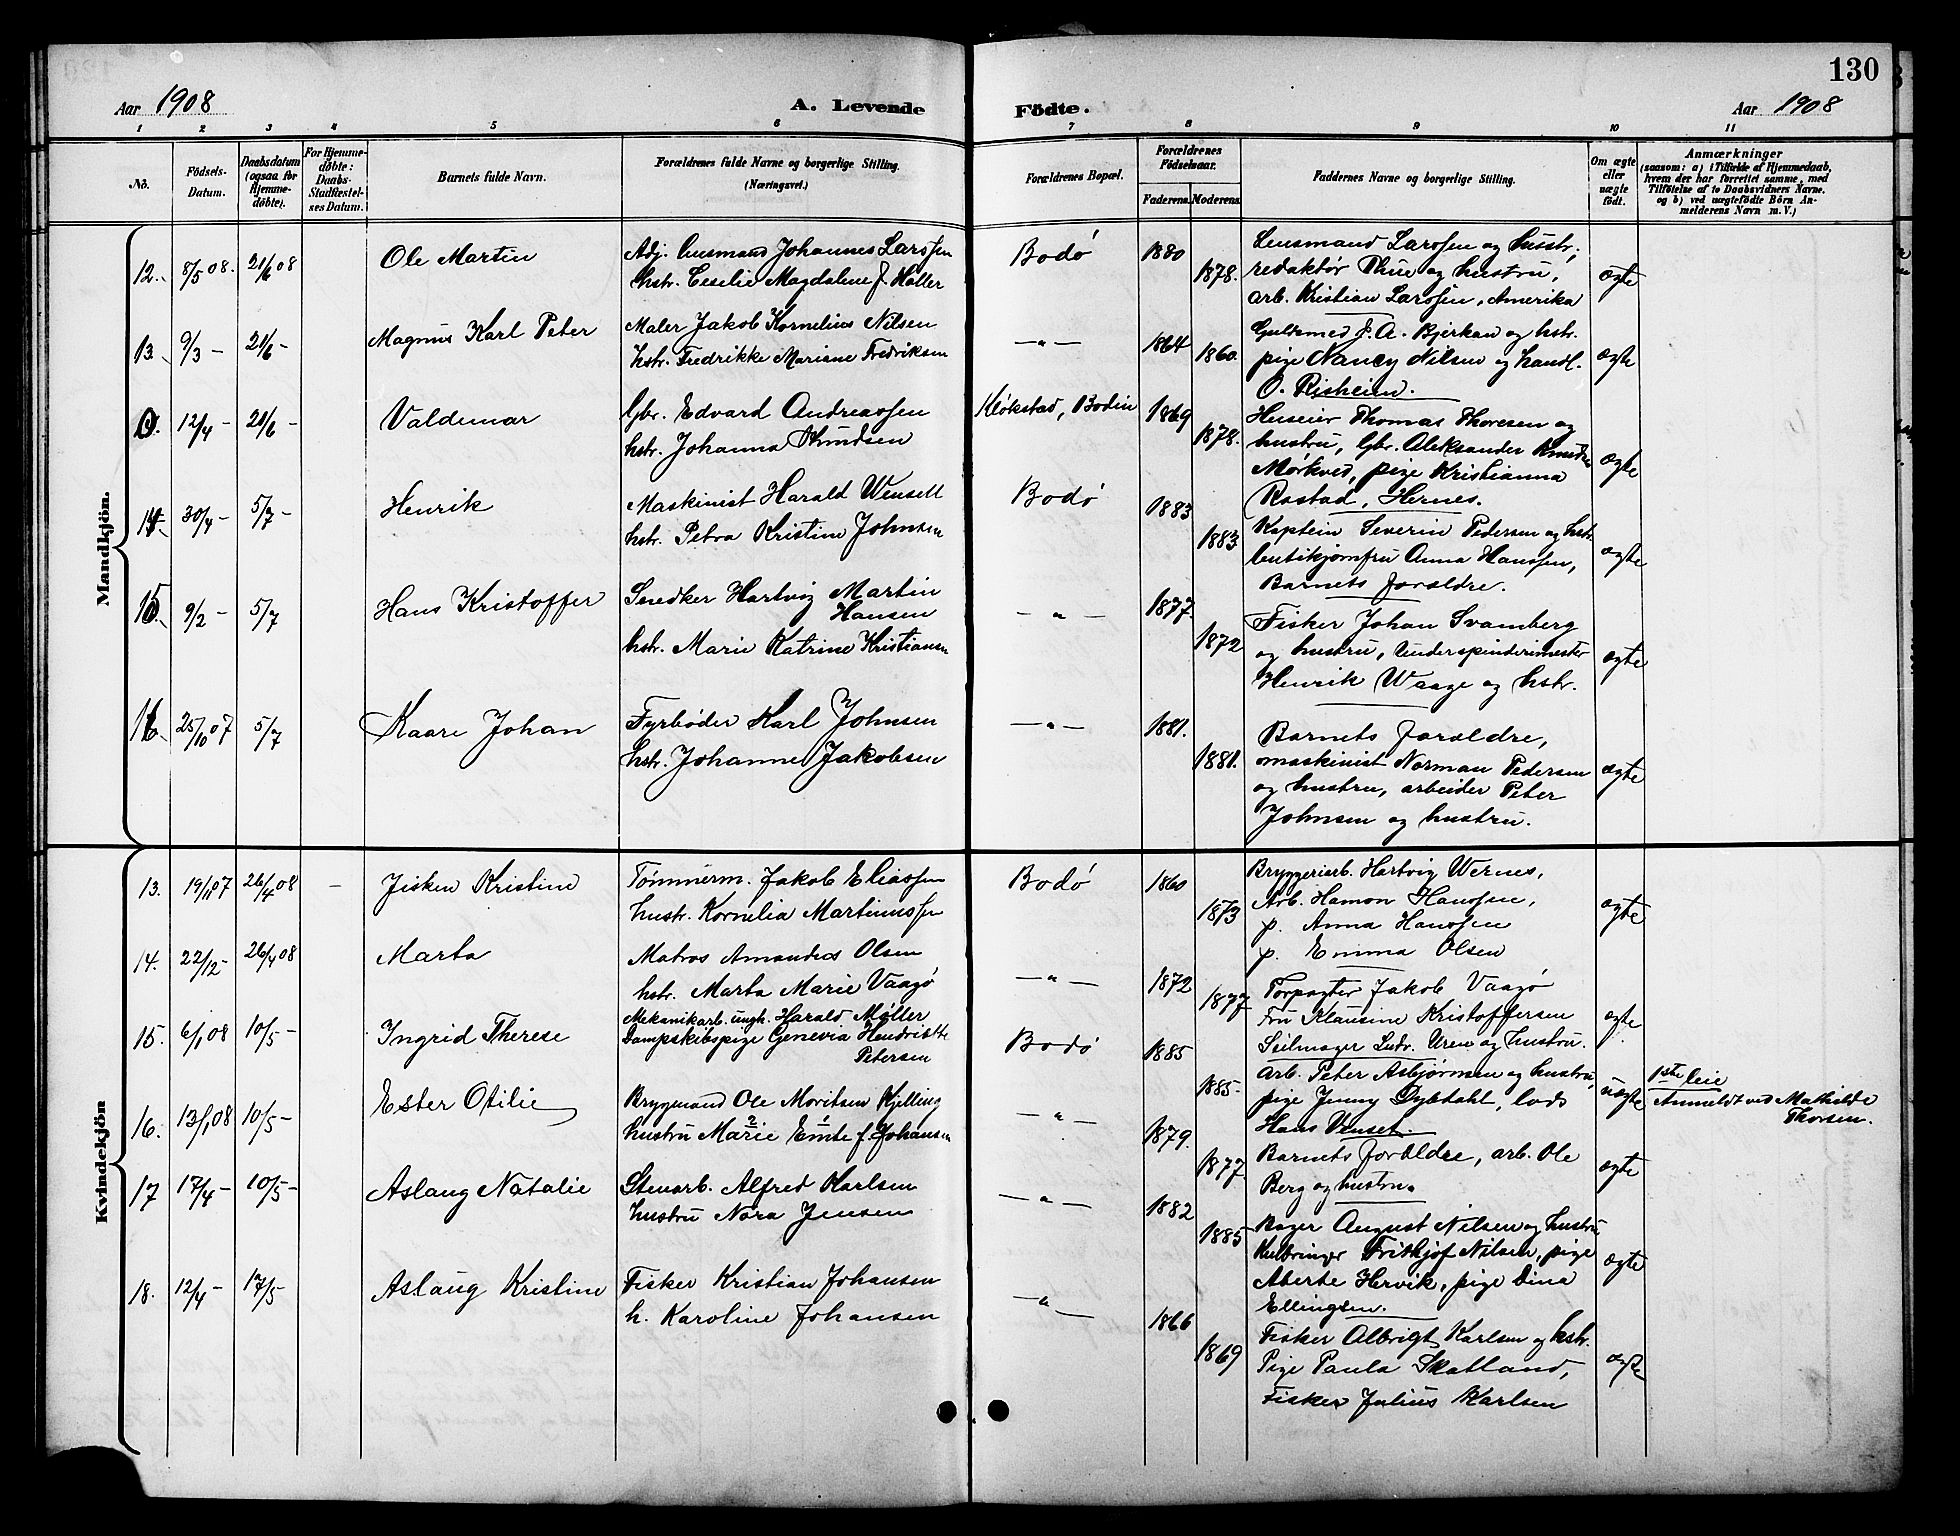 130
Aar 1908 A. Levende Födte. Aar 1908
1 2 3 4 5 6 7 8 9 10 11
No. Födsels-Datum. Daabsdatum (ogsaa for Hjemme-döbte). For Hjemme-döbte: Daabs-Stadfæstel-ses Datum. Barnets fulde Navn. Forældrenes fulde Navne og borgerlige Stilling. (Næringsvei.) Forældrenes Bopæl. Forældrenes Födselsaar. Faderens. Moderens. Faddernes Navne og borgerlige Stilling. Om ægte eller uægte födt. Anmærkninger
(saasom: a) i Tilfælde af Hjemmedaab,
hvem der har forrettet samme, med
Tilföielse af to Daabsvidners Navne.
og b) ved uægtefödte Börn An-
melderens Navn m. V.)
Mandkjön.
12. 8/5 08. 21/6 08 Ole Martin
Adj. Lensmand Johannes Larssen
hstr. Cesilie Magdalene J. Holter
Bodö 1880 1878.
Lensmand Larssen og hustr;
redaktör Thue og hustru,
arb. Kristian Larssen, Amerika
ægte
13. 9/3 – 21/6 – Magnus Karl Peter
Maler Jakob Kornelius Nilsen
hstr. Fredrikke Mariane Fredriksen
— " — 1864 1860.
Guldsmed J. A. Bjerkan og hstr.
pige Nancy Nilsen og handl.
O. Risheien.
ægte
12/4 – 21/6 – Valdemar
Gbr. Edvard Andreassen
hstr. Johanna Knudsen
Klökstad, Bodin 1869 1878.
Huseier Thomas Thoresen og
hustru, Gbr. Aleksander Knudsen
Mörkved, pige Kristianna
Rastad, Hernes.
ægte
14. 30/4 – 5/7 – Henrik
Maskinist Harald Wensell
hstr. Petra Kristine Johnsen
Bodö 1883 1883
Kaptein Severin Pedersen og hstr
butikjomfru Anna Hanssen,
Barnets forældre.
ægte
15. 9/2 – 5/7 Hans Kristoffer
Snedker Hartvig Martin
Hansen
hstr. Marie Katrine Kristiansen
— " — 1877. 1872
Fisker Johan Svamberg
og hustru, Underspinderimester
Henrik Waage og hstr.
ægte
16. 25/10 07 5/7 Kaare Johan
Fyrböder Karl Johnsen
hstr. Johanne Jakobsen
— " — 1881. 1881.
Barnets forældre,
maskinist Norman Pedersen
og hustru, arbeider Peter
Johnsen og hustru.
ægte
Kvindekjön
13. 19/11 07 26/4 08 – Jisken Kristine
Tömmerm. Jakob Eliassen
hustr. Kornelia Martinussen
Bodö 1860 1873
Bryggeriarb. Hartvig Wernes,
Arb. Hamon Hanssen,
p. Anna Hanssen
p. Emma Olsen
ægte
14. 22/12 – 26/4 08 Marta
Matros Amandus Olsen
hstr. Marta Marie Vaagö
— " — 1872 1877
Forpagter Jakob Vaagö
Fru Klausine Kristoffersen
Seilmager Ludv. Uren og hustru.
ægte
15. 6/1 08 10/5 – Ingrid Therese
Mekanikarb. ungk. Harald Möller
Dampskibspige Genevia Hendrikke
Petersen
Bodö 1885 1885.
Arb. Peter Asbjörnsen og hustru
pige Jenny Dybdahl, lods
Hans Venset.
uægte
1ste leie
Anmeldt ved Mathilde
Thorsen.
16. 13/1 08 10/5 – Ester Otilie
Bryggmand Ole Moritsen Kjelling
hustru Marie Emte f. Johansen
2
— " — 1879. 1877
Barnets forældre, arb. Ole
Berg og hustru.
ægte
17 17/4 – 10/5 – Aslaug Natalie
Stenarb. Alfred Karlsen
hustru Nora Jensen
— " — 1882 1885
Bager August Nilsen og hustru
Kulbringer Frithjof Nilsen, pige
Aberte Hervik, pige Dina
Ellingsen.
ægte
18. 12/4 – 17/5 – Aslaug Kristine
Fisker Kristian Johansen
h. Karoline Johansen
— " — 1866 1869
Fisker Albrigt Karlsen og hstr.
Pige Paula Skatland,
Fisker Julius Karlsen
ægte